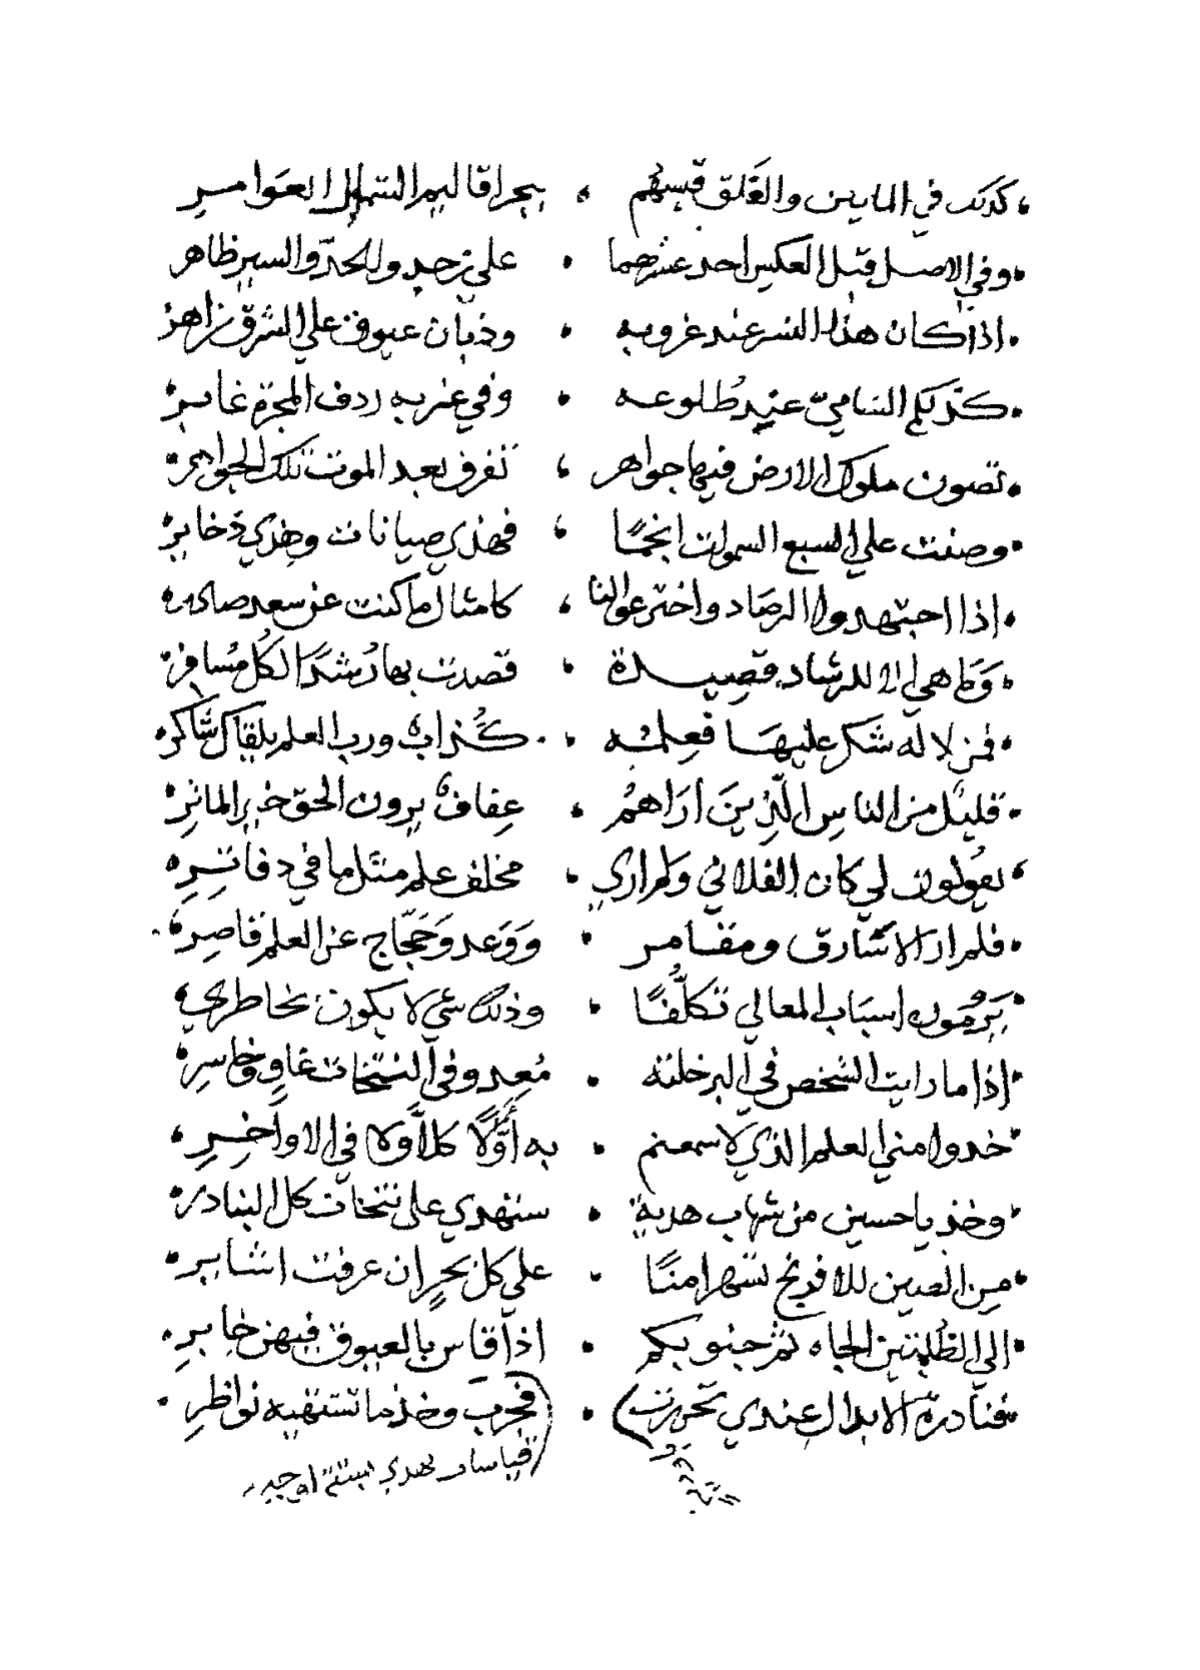 كذلك في المايين والغلق قسهم ، ببحر اقاليم الشمال العوامر
وفي الاصل قبل العكس احد عشرهما . على زحد وللحد والسير ظاهر
اذا كان هذا النسر عند غروبه . وذبان عيوق على الشرق زاهر
كذلكم السامي عند طلوعه . وفي غربه ردف المجرة غاير
تصون ملوك الارض فيها جواهر ، تفرق بعد الموت تلك الجواهر
وصنت على السبع السموات انجما ، فهذي صيانات وهذي ذخاير
اذا اجتهدوا الرصاد واخترعوا لنا ، كامثال ما كنت عن سعد صادر
وما هي الا للرشاد قصيدة . قصدت بها رشدا لكل مسافر
فمن لا له شكر عليها فعلمه . كذاب ورب العلم يلقاك شاكر
قليل من الناس الذين اراهم ، عفاف يرون الحق خير الماثر
يقولون لي كان الفلاني ولم اري . مخلف علم مثل ما في دفاتر
فلم ار الا سارق ومقامر . ووعد وحجاج عن العلم قاصر
يرمون اسباب المعالي تكلفا . وذلك شي لا يكون بخاطري
اذا ما رايت الشخص في البر خلته . معد وفي النتخات غاو وخاسر
خذوا مني العلم الذي لا سمعتم . به اولا كلا ولا في الاواخر
وخذ يا حسين من شهاب هدية . ستهدي على نتخات كل البنادر
من الصين للافرنج تسهر امنا . على كل بحر ان عرفت اشاير
الى الظلمتين الجاه ثم جنوبكم . اذا قاس بالعيوق فيهن خابر
فنادرة الابدال عندي تحررت . فجرب وخذ ما تشتهيه نواظر
قياسا